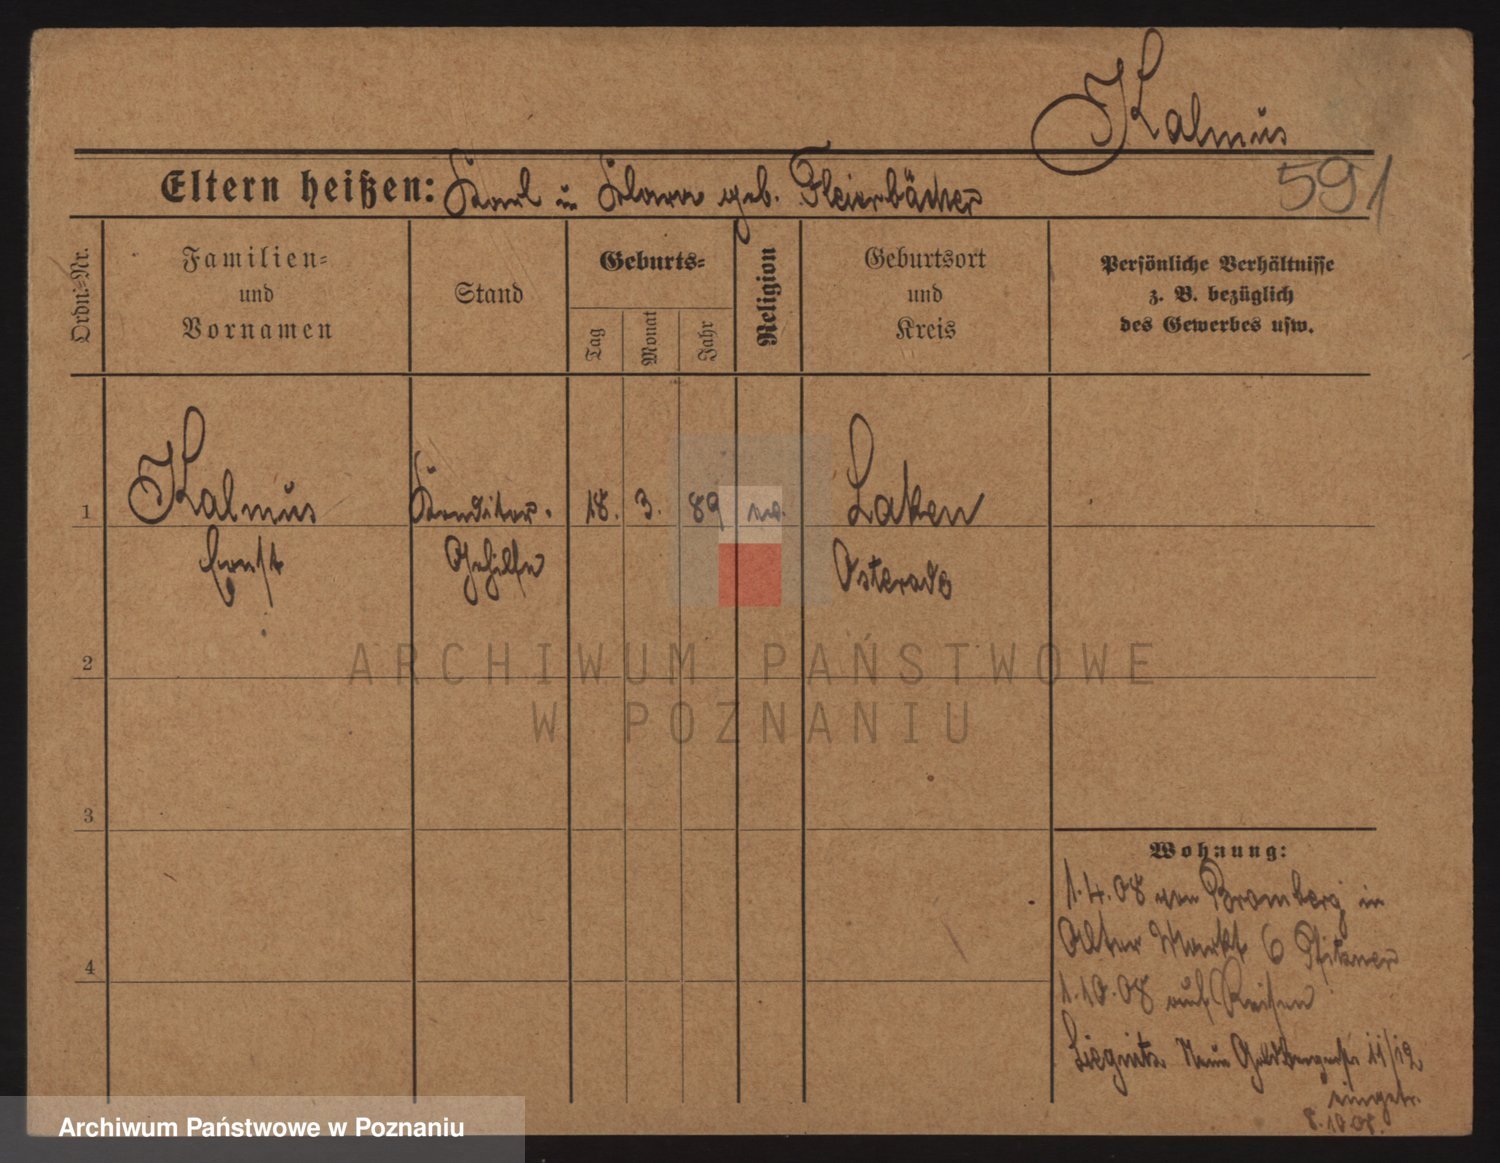 Kalmus
591
Eltern heißen: Karl u Klara geb. Fleierbächer
Ordn.-Nr.
Familien-
und
Vornamen
Stand
Geburts-
Tag
Monat
Jahr
Religion
Geburtsort
und
Kreis
Persönliche Verhältnisse
z. B. bezüglich
des Gewerbes usw.
1
Kalmus
Ernst
Konditor.
Gehilfe
18. 3. 89
Laken
Osterode
2
3
4
Wohnung:
1.4.08 von Bromberg in
Alter Markt 6 Pfitzner
1.10.08 auf Reisen
Liegnitz Neue Goldbergerstr 11/12
eingetr.
ARCHIWUM PAŃSTWOWE
W POZNANIU
Archiwum Państwowe w Poznaniu